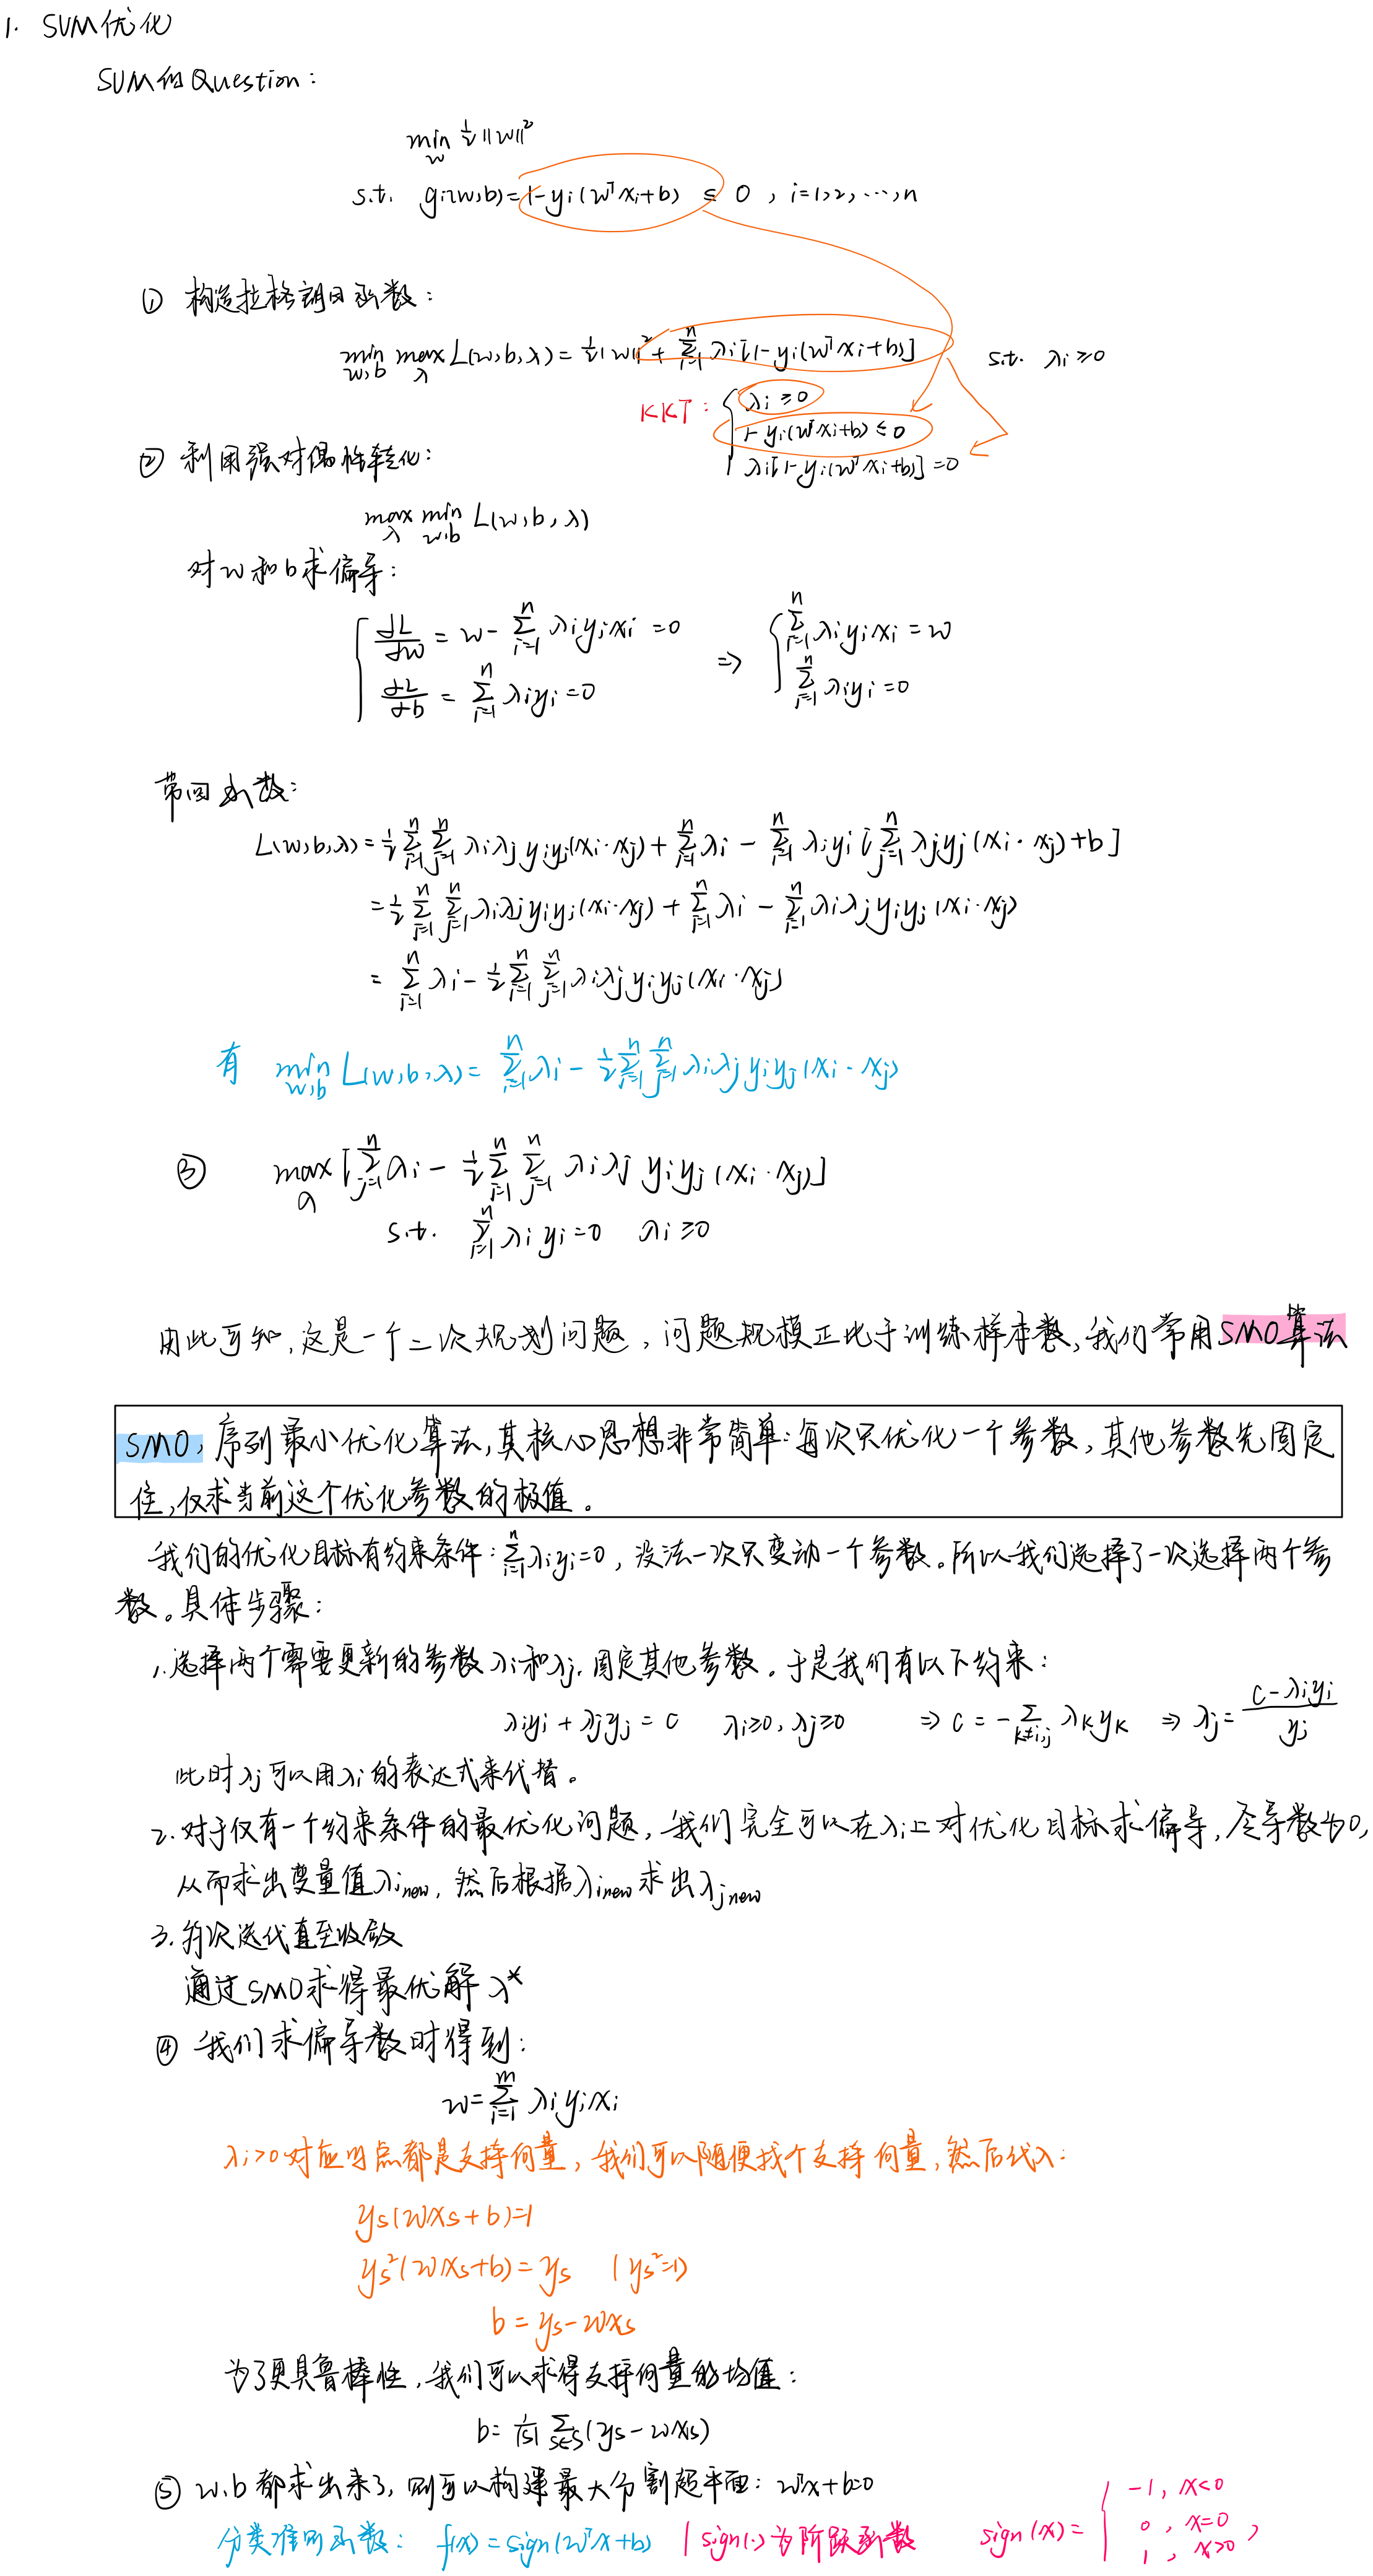 1. SVM优化
SVM的Question:
min_w ½||w||²
s.t. gi(w,b)=1-yi(wᵀxi+b) ≤ 0 , i=1,2,…,n
① 构造拉格朗日函数:
min_{w,b} max_λ L(w,b,λ)= ½||w||²+ Σ_{i=1}^n λi[1-yi(wᵀxi+b)] s.t. λi≥0
KKT: { λi≥0
1-yi(wᵀxi+b)≤0
λi[1-yi(wᵀxi+b)]=0
② 利用强对偶性转化:
max_λ min_{w,b} L(w,b,λ)
对w和b求偏导:
{ ∂L/∂w = w- Σ_{i=1}^n λiyixi =0 ⇒ { Σ_{i=1}^n λiyixi = w
∂L/∂b = Σ_{i=1}^n λiyi=0 Σ_{i=1}^n λiyi=0
带回函数:
L(w,b,λ)=½ Σ_{i=1}^n Σ_{j=1}^n λiλjyiyj(xi·xj)+ Σ_{i=1}^n λi - Σ_{i=1}^n λiyi [Σ_{j=1}^n λjyj(xi·xj)+b]
=½ Σ_{i=1}^n Σ_{j=1}^n λiλjyiyj(xi·xj) + Σ_{i=1}^n λi - Σ_{i=1}^n λiλjyiyj(xi·xj)
= Σ_{i=1}^n λi - ½ Σ_{i=1}^n Σ_{j=1}^n λiλjyiyj(xi·xj)
有 min_{w,b} L(w,b,λ)= Σ_{i=1}^n λi - ½ Σ_{i=1}^n Σ_{j=1}^n λiλjyiyj(xi·xj)
③ max_λ [Σ_{j=1}^n λi - ½ Σ_{i=1}^n Σ_{j=1}^n λiλj yiyj(xi·xj)]
s.t. Σ_{i=1}^n λiyi=0 λi≥0
由此可知,这是一个二次规划问题,问题规模正比于训练样本数,我们常用SMO算法
SMO,序列最小优化算法,其核心思想非常简单:每次只优化一个参数,其他参数先固定
住,仅求当前这个优化参数的极值。
我们的优化目标有约束条件:Σ_{i=1}^n λiyi=0,没法一次只变动一个参数。所以我们选择了一次选择两个参
数。具体步骤:
1.选择两个需要更新的参数λi和λj,固定其他参数。于是我们有以下约束:
λiyi + λjyj = c λi≥0, λj≥0 ⇒ c = -Σ_{k≠i,j} λkyk ⇒ λj= (c-λiyi)/yj
此时λj可以用λi的表达式来代替。
2.对于仅有一个约束条件的最优化问题,我们完全可以在λi上对优化目标求偏导,令导数为0,
从而求出变量值λinew,然后根据λinew求出λjnew
3.多次迭代直至收敛
通过SMO求得最优解λ*
④ 我们求偏导数时得到:
w= Σ_{i=1}^m λiyixi
λi>0对应的点都是支持向量,我们可以随便找个支持向量,然后代入:
ys(wxs+b)=1
ys²(wxs+b)=ys (ys²=1)
b = ys-wxs
为了更具鲁棒性,我们可以求得支持向量的均值:
b= 1/|S| Σ_{s∈S}(ys-wxs)
⑤ w,b都求出来了,则可以构建最大分割超平面: wᵀx+b=0
分类准则函数: f(x)=sign(wᵀx+b) | sign(·)为阶跃函数 sign(x)= { -1, x<0
0, x=0
1, x>0 ,